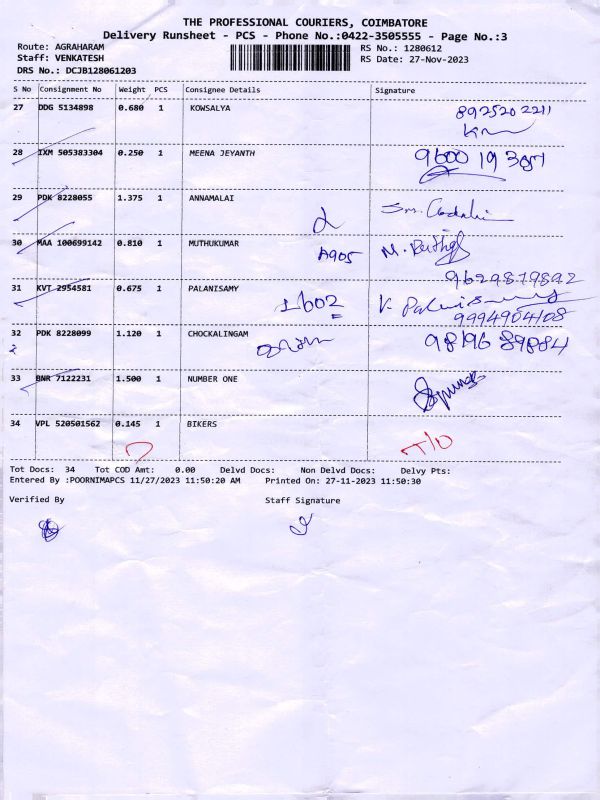 THE PROFESSIONAL COURIERS, COIMBATORE
Delivery Runsheet - PCS - Phone No.:0422-3505555 - Page No.:3
Route: AGRAHARAM
RS No.: 1280612
Staff: VENKATESH
RS Date: 27-Nov-2023
DRS No.: DCJB128061203
S No Consignment No Weight PCS Consignee Details Signature
27 DDG 5134898 0.680 1 KOWSALYA 892520 2211
28 IXM 505383304 0.250 1 MEENA JEYANTH
29 PDK 8228055 1.375 1 ANNAMALAI
30 MAA 100699142 0.810 1 MUTHUKUMAR A905
9629879892
31 KVT 2954581 0.675 1 PALANISAMY 1602
9994904108
32 PDK 8228099 1.120 1 CHOCKALINGAM 98196 89884
2
33 BNR 7122231 1.500 1 NUMBER ONE
34 VPL 520501562 0.145 1 BIKERS T/O
Tot Docs: 34 Tot COD Amt: 0.00 Delvd Docs: Non Delvd Docs: Delvy Pts:
Entered By :POORNIMAPCS 11/27/2023 11:50:20 AM Printed On: 27-11-2023 11:50:30
Verified By Staff Signature